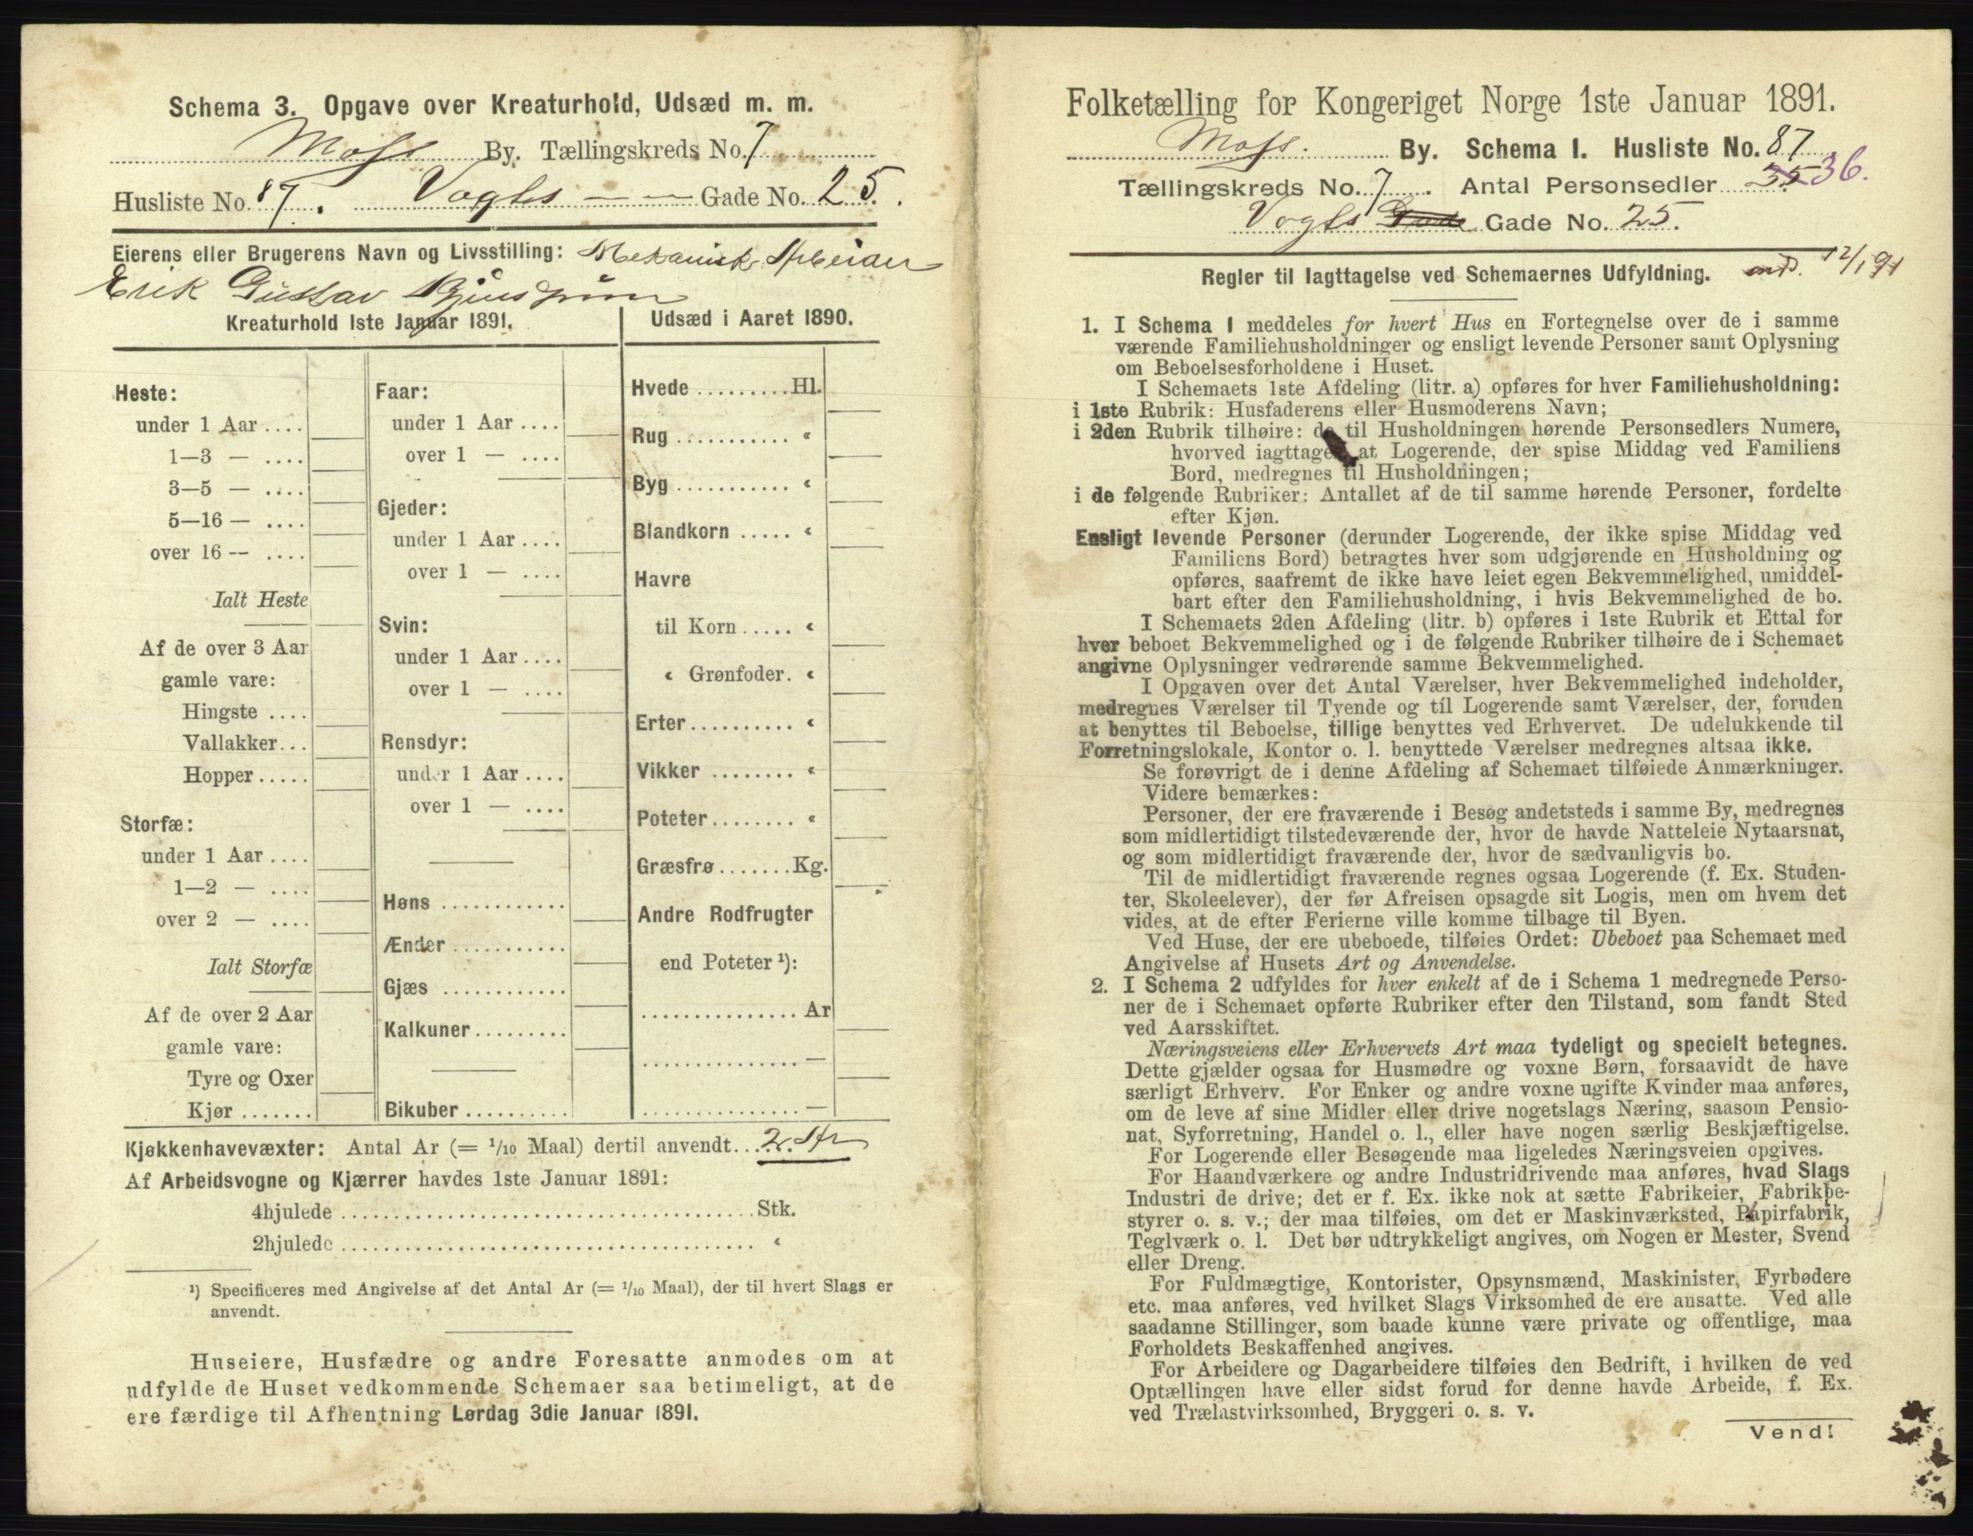 Schema 3. Opgave over Kreaturhold, Udsæd m. m.
Moss By. Tællingskreds No. 7
Husliste No. 87. Vogts - - Gade No. 25.
Eierens eller Brugerens Navn og Livsstilling: Mekanisk Arbeider
Erik Gustav
Kreaturhold 1ste Januar 1891.
Heste:
under 1 Aar ....
1—3 — ....
3—5 — ....
5—16 — ....
over 16 — ....
Ialt Heste
Af de over 3 Aar
gamle vare:
Hingste ....
Vallakker...
Hopper .....
Storfæ:
under 1 Aar ....
1—2 — ....
over 2 — ....
Ialt Storfæ
Af de over 2 Aar
gamle vare:
Tyre og Oxer
Kjør .......
Faar:
under 1 Aar ....
over 1 — ....
Gjeder:
under 1 Aar ....
over 1 — ....
Svin:
under 1 Aar ....
over 1 — ....
Rensdyr:
under 1 Aar ....
over 1 — ....
Høns ............
Ænder ...........
Gjæs ............
Kalkuner.........
Bikuber ..........
Udsæd i Aaret 1890.
Hvede .........Hl.
Rug ........... «
Byg ........... «
Blandkorn ..... «
Havre
til Korn ..... «
« Grønfoder. «
Erter .......... «
Vikker ......... «
Poteter ........ «
Græsfrø .......Kg.
Andre Rodfrugter
end Poteter ¹):
............... Ar
............... —
............... —
Kjøkkenhavevæxter: Antal Ar (= 1/10 Maal) dertil anvendt... 2. Ar
Af Arbeidsvogne og Kjærrer havdes 1ste Januar 1891:
4hjulede ........................................Stk.
2hjulede ........................................ «
¹) Specificeres med Angivelse af det Antal Ar (= 1/10 Maal), der til hvert Slags er
anvendt.
Huseiere, Husfædre og andre Foresatte anmodes om at
udfylde de Huset vedkommende Schemaer saa betimeligt, at de
ere færdige til Afhentning Lørdag 3die Januar 1891.
Folketælling for Kongeriget Norge 1ste Januar 1891.
Moss. By. Schema I. Husliste No. 87
Tællingskreds No. 7. Antal Personsedler 35 36.
Vogts Gade Gade No. 25.
Regler til Iagttagelse ved Schemaernes Udfyldning. 12/1 91
1. I Schema 1 meddeles for hvert Hus en Fortegnelse over de i samme
værende Familiehusholdninger og ensligt levende Personer samt Oplysning
om Beboelsesforholdene i Huset.
I Schemaets 1ste Afdeling (litr. a) opføres for hver Familiehusholdning:
i 1ste Rubrik: Husfaderens eller Husmoderens Navn;
i 2den Rubrik tilhøire: de til Husholdningen hørende Personsedlers Numere,
hvorved iagttages, at Logerende, der spise Middag ved Familiens
Bord, medregnes til Husholdningen;
i de følgende Rubriker: Antallet af de til samme hørende Personer, fordelte
efter Kjøn.
Ensligt levende Personer (derunder Logerende, der ikke spise Middag ved
Familiens Bord) betragtes hver som udgjørende en Husholdning og
opføres, saafremt de ikke have leiet egen Bekvemmelighed, umiddel-
bart efter den Familiehusholdning, i hvis Bekvemmelighed de bo.
I Schemaets 2den Afdeling (litr. b) opføres i 1ste Rubrik et Ettal for
hver beboet Bekvemmelighed og i de følgende Rubriker tilhøire de i Schemaet
angivne Oplysninger vedrørende samme Bekvemmelighed.
I Opgaven over det Antal Værelser, hver Bekvemmelighed indeholder,
medregnes Værelser til Tyende og til Logerende samt Værelser, der, foruden
at benyttes til Beboelse, tillige benyttes ved Erhvervet. De udelukkende til
Forretningslokale, Kontor o. l. benyttede Værelser medregnes altsaa ikke.
Se forøvrigt de i denne Afdeling af Schemaet tilføiede Anmærkninger.
Videre bemærkes:
Personer, der ere fraværende i Besøg andetsteds i samme By, medregnes
som midlertidigt tilstedeværende der, hvor de havde Natteleie Nytaarsnat,
og som midlertidigt fraværende der, hvor de sædvanligvis bo.
Til de midlertidigt fraværende regnes ogsaa Logerende (f. Ex. Studen-
ter, Skoleelever), der før Afreisen opsagde sit Logis, men om hvem det
vides, at de efter Ferierne ville komme tilbage til Byen.
Ved Huse, der ere ubeboede, tilføies Ordet: Ubeboet paa Schemaet med
Angivelse af Husets Art og Anvendelse.
2. I Schema 2 udfyldes for hver enkelt af de i Schema 1 medregnede Perso-
ner de i Schemaet opførte Rubriker efter den Tilstand, som fandt Sted
ved Aarsskiftet.
Næringsveiens eller Erhvervets Art maa tydeligt og specielt betegnes.
Dette gjælder ogsaa for Husmødre og voxne Børn, forsaavidt de have
særligt Erhverv. For Enker og andre voxne ugifte Kvinder maa anføres,
om de leve af sine Midler eller drive nogetslags Næring, saasom Pensio-
nat, Syforretning, Handel o. l., eller have nogen særlig Beskjæftigelse.
For Logerende eller Besøgende maa ligeledes Næringsveien opgives.
For Haandværkere og andre Industridrivende maa anføres, hvad Slags
Industri de drive; det er f. Ex. ikke nok at sætte Fabrikeier, Fabrikbe-
styrer o. s. v.; der maa tilføies, om det er Maskinværksted, Papirfabrik,
Teglværk o. l. Det bør udtrykkeligt angives, om Nogen er Mester, Svend
eller Dreng.
For Fuldmægtige, Kontorister, Opsynsmænd, Maskinister, Fyrbødere
etc. maa anføres, ved hvilket Slags Virksomhed de ere ansatte. Ved alle
saadanne Stillinger, som baade kunne være private og offentlige, maa
Forholdets Beskaffenhed angives.
For Arbeidere og Dagarbeidere tilføies den Bedrift, i hvilken de ved
Optællingen have eller sidst forud for denne havde Arbeide, f. Ex.
ved Trælastvirksomhed, Bryggeri o. s. v.
Vend!